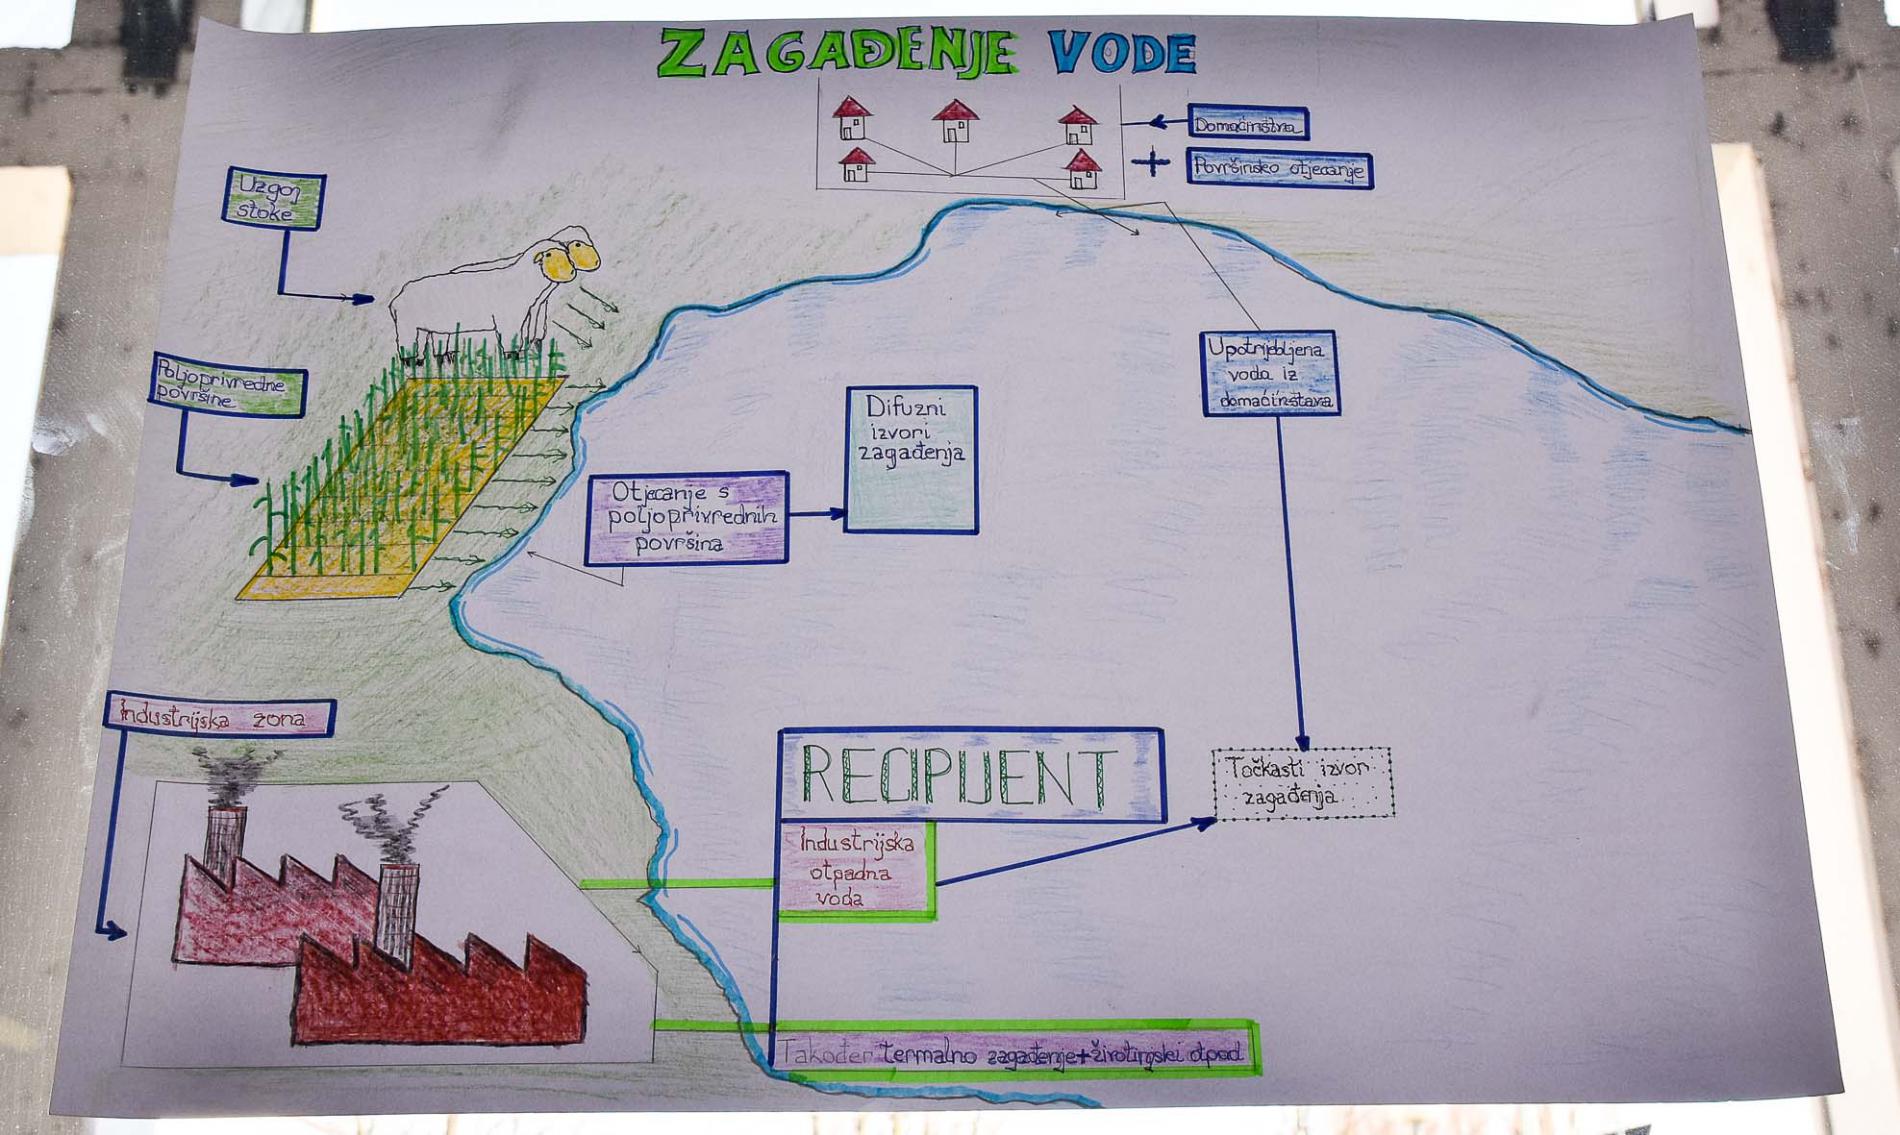 ZAGAĐENJE VODE
Domaćinstva
Površinsko otjecanje
Uzgoj
stoke
Poljoprivredne
površine
Upotrijebljena
voda iz
domaćinstava
Difuzni
izvori
zagađenja
Otjecanje s
poljoprivrednih
površina
Industrijska zona
RECIPIJENT
Točkasti izvor
zagađenja
Industrijska
otpadna
voda
Također termalno zagađenje+životinjski otpad